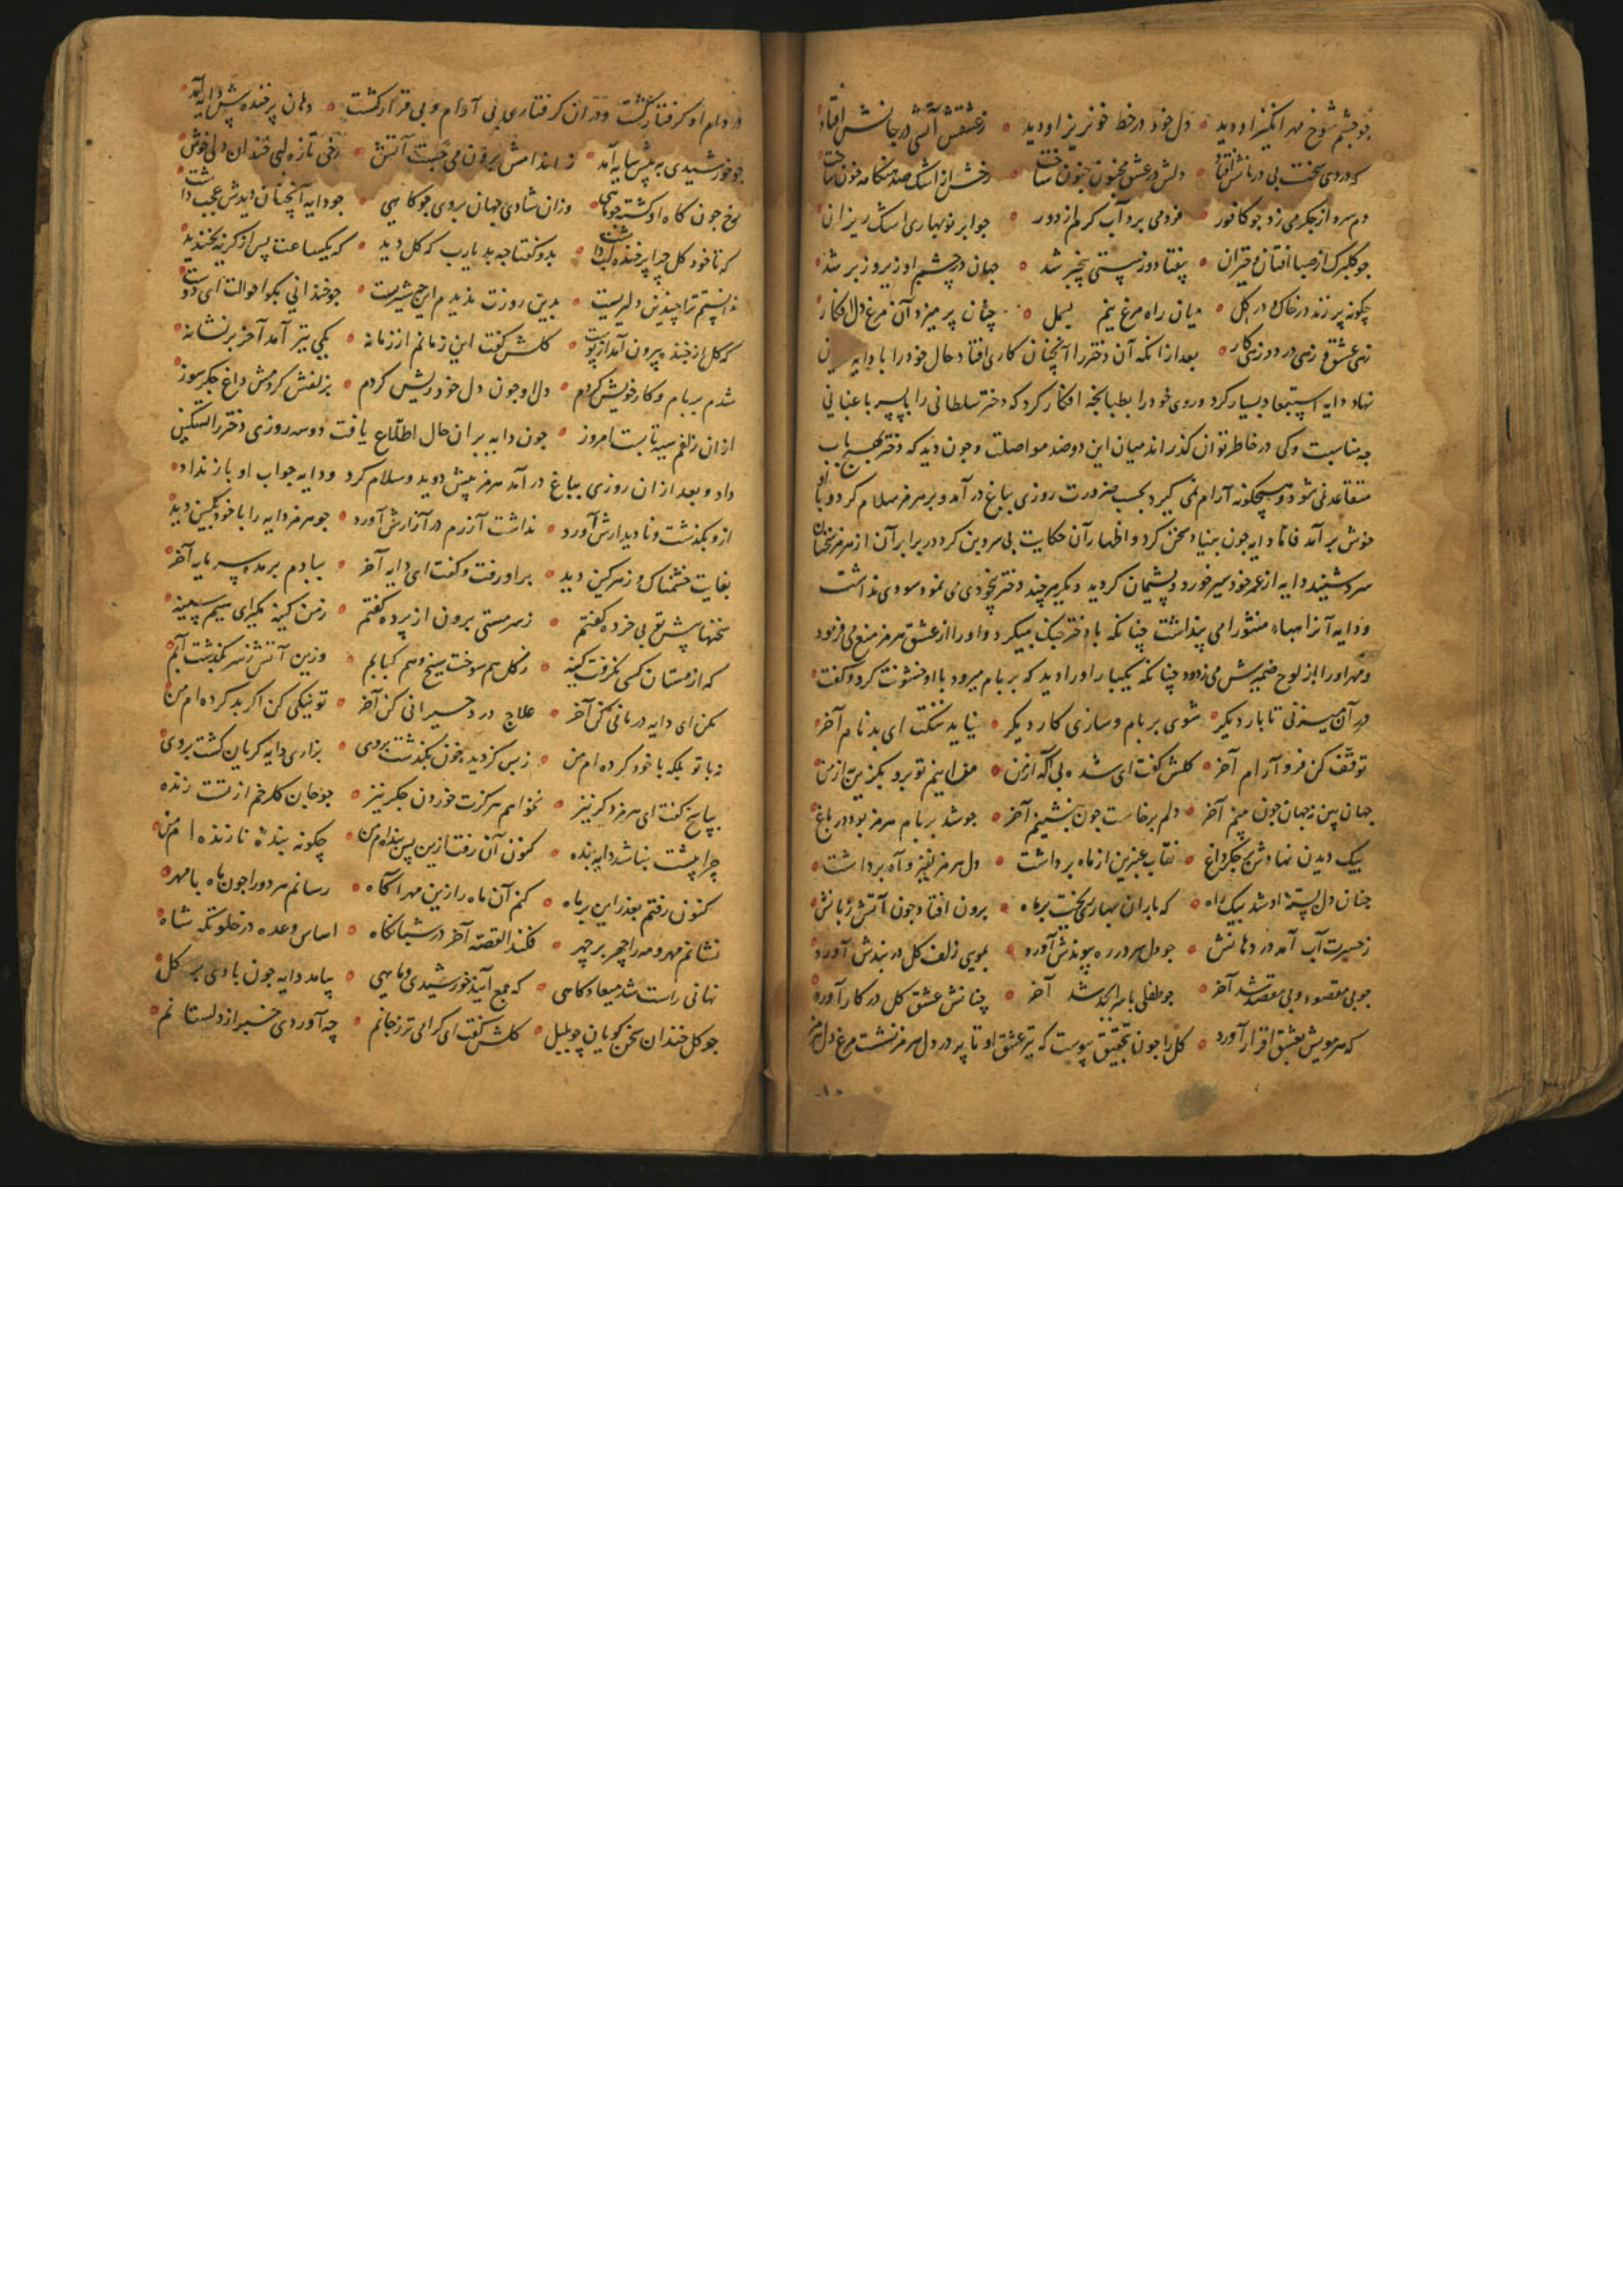 جو چشم شوخ مهر انگیز او دید ० دل خود در خط خونریز او دید ० ز عشقش آتشی در جانش افتاد
که دردی سخت بی درمانش افتاد ० دلش در عشق مجنون جنون ساخت ० رخش از اشک صد هنکامه خون ساخت
دم سرد از جکر می زد جو کافور ० فرو می برد آب کرم از دور ० جو ابر نوبهاری اشک ریزان
جو کلبرک از صبا افتان و خیزان ० بیفتاد و ز پستی بیخبر شد ० جهان در چشم او زیر و زبر شد
چکونه پر زند در خاک و در کل ० میان راه مرغ نیم بسمل ० چنان پر میزد آن مرغ دل افکار
زهی عشق و زهی درد و زهی کار ० بعد از انکه آن دختر را آنچنان کاری افتاد حال خود را با دایه
نهاد دایه استبعاد بسیار کرد و روی خود را بطبانجه افکار کرد که دختر سلطانی را با پسر باغبانی
جه مناسبت و کی در خاطر توان کذراند میان این دو ضد مواصلت و جون دید که دختر بهیج باب
متقاعد نمی شود و هیچکونه آرام نمی کیرد بحسب ضرورت روزی بباغ در آمد و بر هرمز سلام کرد و با او
خوش بر آمد فاما دایه جون بنیاد سخن کرد و اظهار آن حکایت بی سر و بن کرد در برابر آن از هرمز سخنان
سرد شنید دایه از عمر خود سیر خورد و پشیمان کردید و دیکر هر چند دختر بیخودی می نمود سودی نداشت
و دایه آنرا هباء منثورا می پنداشت چنانکه با دختر جنک میکرد و او را از عشق هرمز منع می فرمود
و مهر او را از لوح ضمیرش می زدود چنانکه یکبار او را دید که بر بام میرود با او خشونت کرد و کفت
در آن میزنی تا بار دیکر ० شوی بر بام و سازی کار دیکر ० نیاید ننکت ای بد نام آخر
توقف کن فرو آرام آخر ० کلش کفت ای شده بی آکه از من ० مزاینم تو برو بکزین از من
جهان بین ز جهان جون بینم آخر ० دلم برخاست جون بنشینم آخر ० جو شد بر بام هرمز بود در باغ
بیک دیدن نهادش بر جکر داغ ० نقاب عنبرین از ماه برداشت ० دل هرمز نفیر و آه برداشت
جنان دل بستهٔ او شد بیک راه ० که باران بهاری ریخت بر ماه ० برون افتاد جون آتش زبانش
ز حسرت آب آمد در دهانش ० جو دل هر در ره پیوندش آورد ० بموی زلف کل در بندش آورد
جو بی مقصود و بی مقصد شد آخر ० جو طفلی با سر ابجد شد آخر ० چنانش عشق کل در کار آورد
که هر مویش بعشق اقرار آورد ० کل را جون بتحقیق پیوست که تیر عشق او تا پر در دل هرمز نشست و مرغ دل هرمز
در دام او کرفتار کشت و در ان کرفتاری بی آرام و بی قرار کشت ० دهان پر خنده پیش دایه آمد
جو خورشیدی به پیش سایه آمد ० ز اندامش برون می جست آتش ० رخی تازه لبی خندان دلی خوش
رخ جون کاه او کشته جو ماهی ० وزان شادی جهان بروی جو کاهی ० جو دایه آنچنان دیدش عجب داشت
که تا خود کل چرا پر خنده لب داشت ० بدو کفتا جه بد یارب که کل دید ० که یکساعت پس از کریه بخندید
ندانستم ترا چندین دلیریست ० بدین روزت ندیدم این جه شیریست ० جو خندانی بکو احوالت ای دوست
که کل از خنده بیرون آمد از پوست ० کلش کفت این زمانم از زمانه ० یکی تیر آمد آخر بر نشانه
شدم بر بام و کار خویش کردم ० دل او جون دل خود ریش کردم ० بزلفش کردمش داغ جکر سوز
از ان زلفم سیه تابست امروز ० جون دایه بر ان حال اطلاع یافت دو سه روزی دختر را تسکین
داد و بعد از ان روزی بباغ در آمد هرمز پیش دوید و سلام کرد و دایه جواب او باز نداد
ازو بکذشت و نادیدارش آورد ० نداشت آزرم در آزارش آورد ० جو هرمز دایه را با خود بکین دید
بغایت خشمناک و زهرکین دید ० بر او رفت و کفت ای دایه آخر ० ببادم بر مده سرمایه آخر
سخنهایش تو بی خرده کفتم ० ز سر مستی برون از پرده کفتم ० ز من کینه مکیر ای سیم سینه
که از مستان کسی نکرفت کینه ० ز کل هم سوخت سیخ و هم کبابم ० وزین آتش ز سر بکذشت آبم
مکن ای دایه درمانی کن آخر ० علاج درد حیرانی کن آخر ० تو نیکی کن اکر بد کرده ام من
نه با تو بلکه با خود کرده ام من ० ز بس کز دیده خون بکذشت بروی ० بزاری دایه کریان کشت بروی
بپاسخ کفت ای هرمز دکر نیز ० نخواهم هرکزت خوردن جکر نیز ० جو جان کلرخم از تست زنده
چرا پیشت نباشد دایه بنده ० کنون آن رفت ازین پس بنده ام من ० چکونه بندهٔ تا زنده ام من
کنون رفتم بعذر این بر ماه ० کنم آن ماه را زین مهر آکاه ० رسانم هر دو را جون ماه با مهر
نشانم مهر و مه را چهر بر چهر ० فکند القصه آخر در شبانکاه ० اساس وعده در خلوتکه شاه
نهانی راست شد میعادکاهی ० که جمع آیند خورشیدی و ماهی ० بیامد دایه جون بادی بر کل
جو کل خندان سخن کویان چو بلبل ० کلش کفت ای کرامی تر ز جانم ० چه آوردی خبر از دلستانم